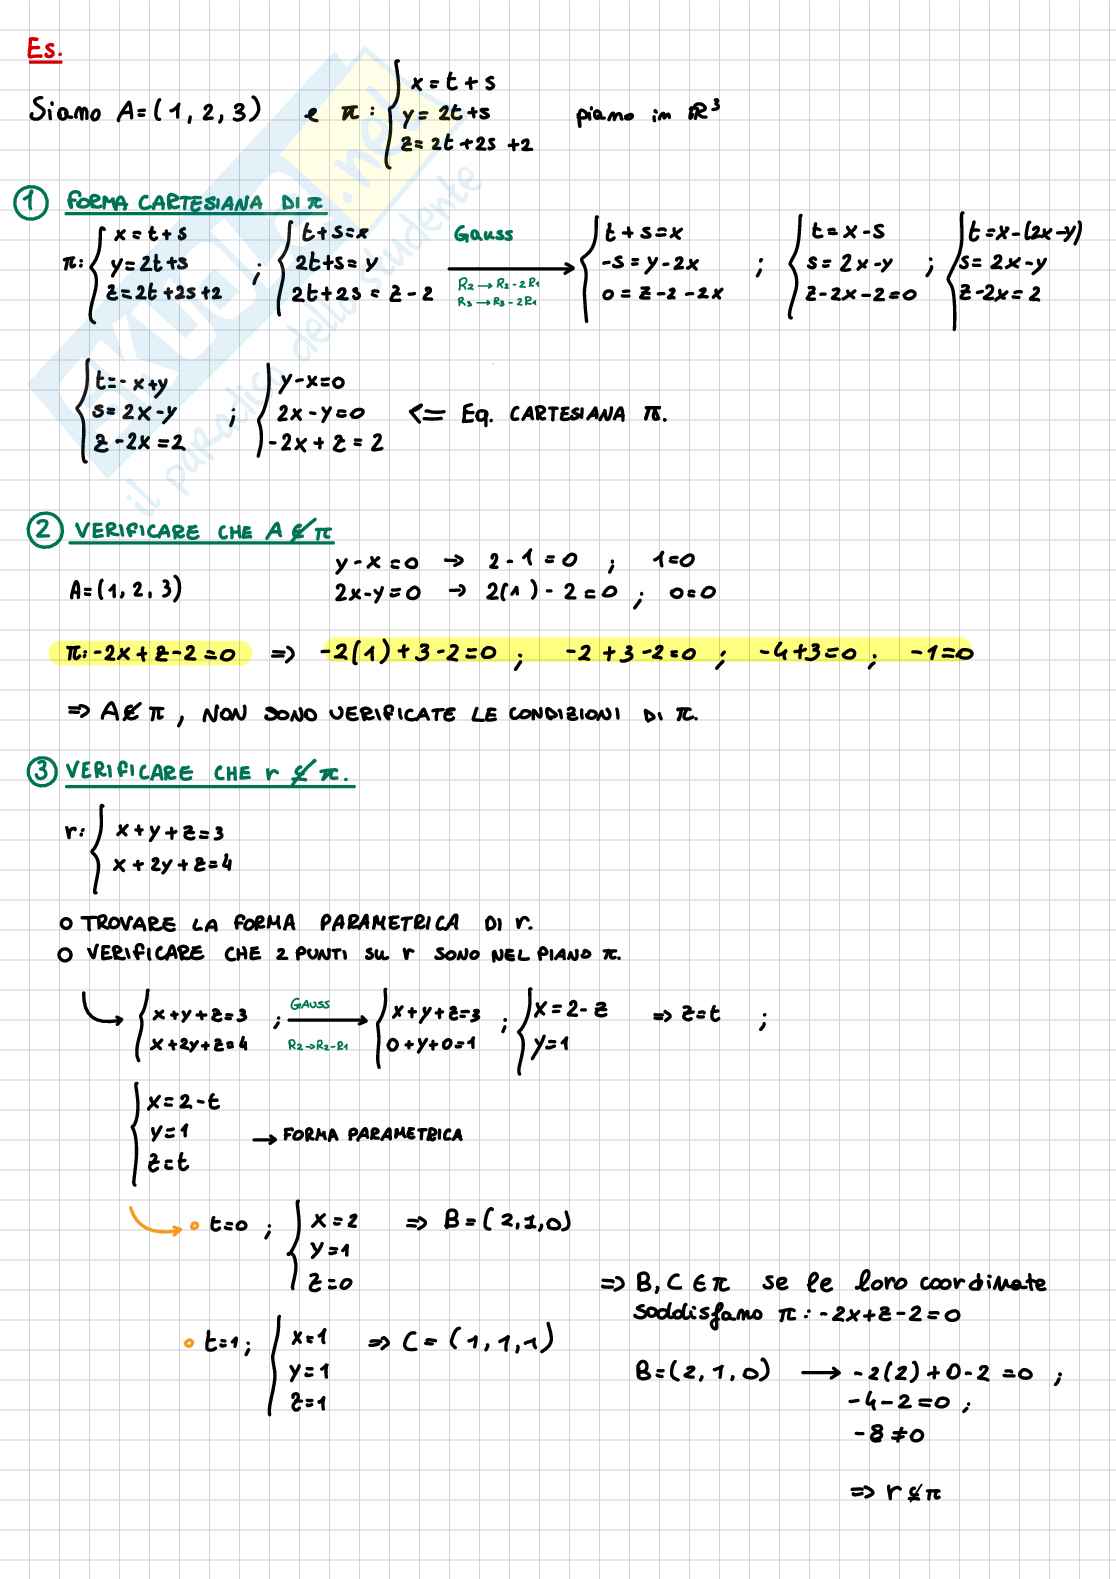 Es.
Siamo A=(1, 2, 3) e π: { x = t + s
y = 2t+s
z = 2t +2s +2
piano in ℝ³
① FORMA CARTESIANA DI π
π: { x = t + s
y = 2t+s
z = 2t +2s +2
; { t + s = x
2t+s = y
2t+2s = z - 2
Gauss
R₂ → R₂ - 2R₁
R₃ → R₃ - 2R₁
{ t + s = x
-s = y - 2x
0 = z - 2 - 2x
; { t = x - s
s = 2x - y
z - 2x - 2 = 0
; { t = x - (2x - y)
s = 2x - y
z - 2x = 2
{ t = - x + y
s = 2x - y
z - 2x = 2
; { y - x = 0
2x - y = 0
-2x + z = 2
<= Eq. CARTESIANA π.
② VERIFICARE CHE A ∉ π
A=(1, 2, 3)
y - x = 0 → 2 - 1 = 0 ; 1=0
2x - y = 0 → 2(1) - 2 = 0 ; 0=0
π: -2x + z - 2 = 0 => -2(1) + 3 - 2 = 0 ; -2 + 3 - 2 = 0 ; -4 + 3 = 0 ; -1 = 0
=> A ∉ π , NON SONO VERIFICATE LE CONDIZIONI DI π.
③ VERIFICARE CHE r ⊄ π.
r: { x + y + z = 3
x + 2y + z = 4
o TROVARE LA FORMA PARAMETRICA DI r.
o VERIFICARE CHE 2 PUNTI SU r SONO NEL PIANO π.
{ x + y + z = 3
x + 2y + z = 4
; GAUSS
R₂ → R₂ - R₁
{ x + y + z = 3
0 + y + 0 = 1
; { x = 2 - z
y = 1
=> z = t ;
{ x = 2 - t
y = 1
z = t
→ FORMA PARAMETRICA
• t=0 ; { x = 2
y = 1
z = 0
=> B = (2, 1, 0)
• t=1 ; { x = 1
y = 1
z = 1
=> C = (1, 1, 1)
=> B, C ∈ π se le loro coordinate
soddisfano π: -2x + z - 2 = 0
B = (2, 1, 0) → -2(2) + 0 - 2 = 0 ;
-4 - 2 = 0 ;
-8 ≠ 0
=> r ⊄ π
SKUOLA.net
il paradiso dello studente